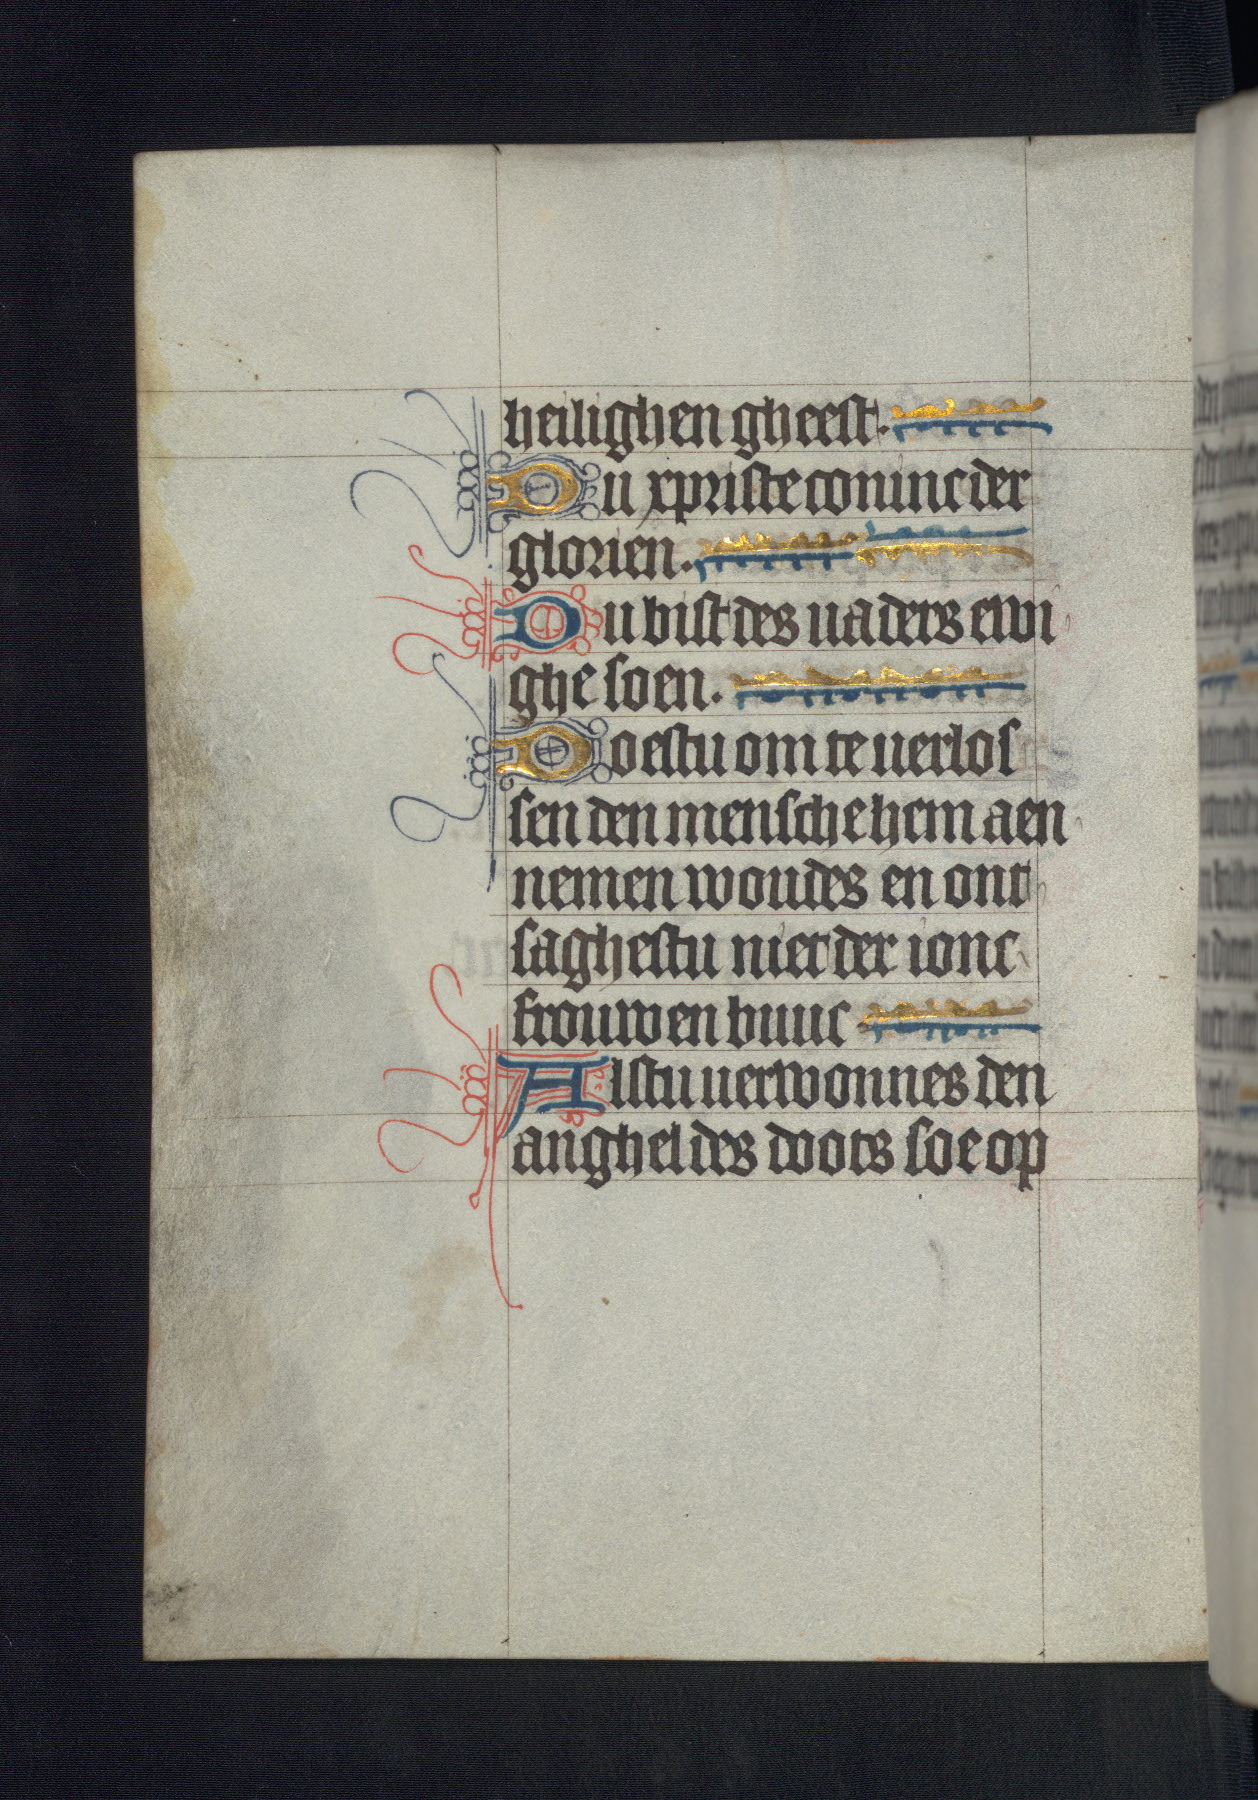 heilighen gheest.
Du xpriste coninc der
glorien.
Du bist des uaders ewi
ghe soen.
Doestu om te uerlos
sen den mensche hem aen
nemen woudes en ont
saghestu niet der ionc
frouwen buuc
Alstu uerwonnes den
anghel des doots soe op